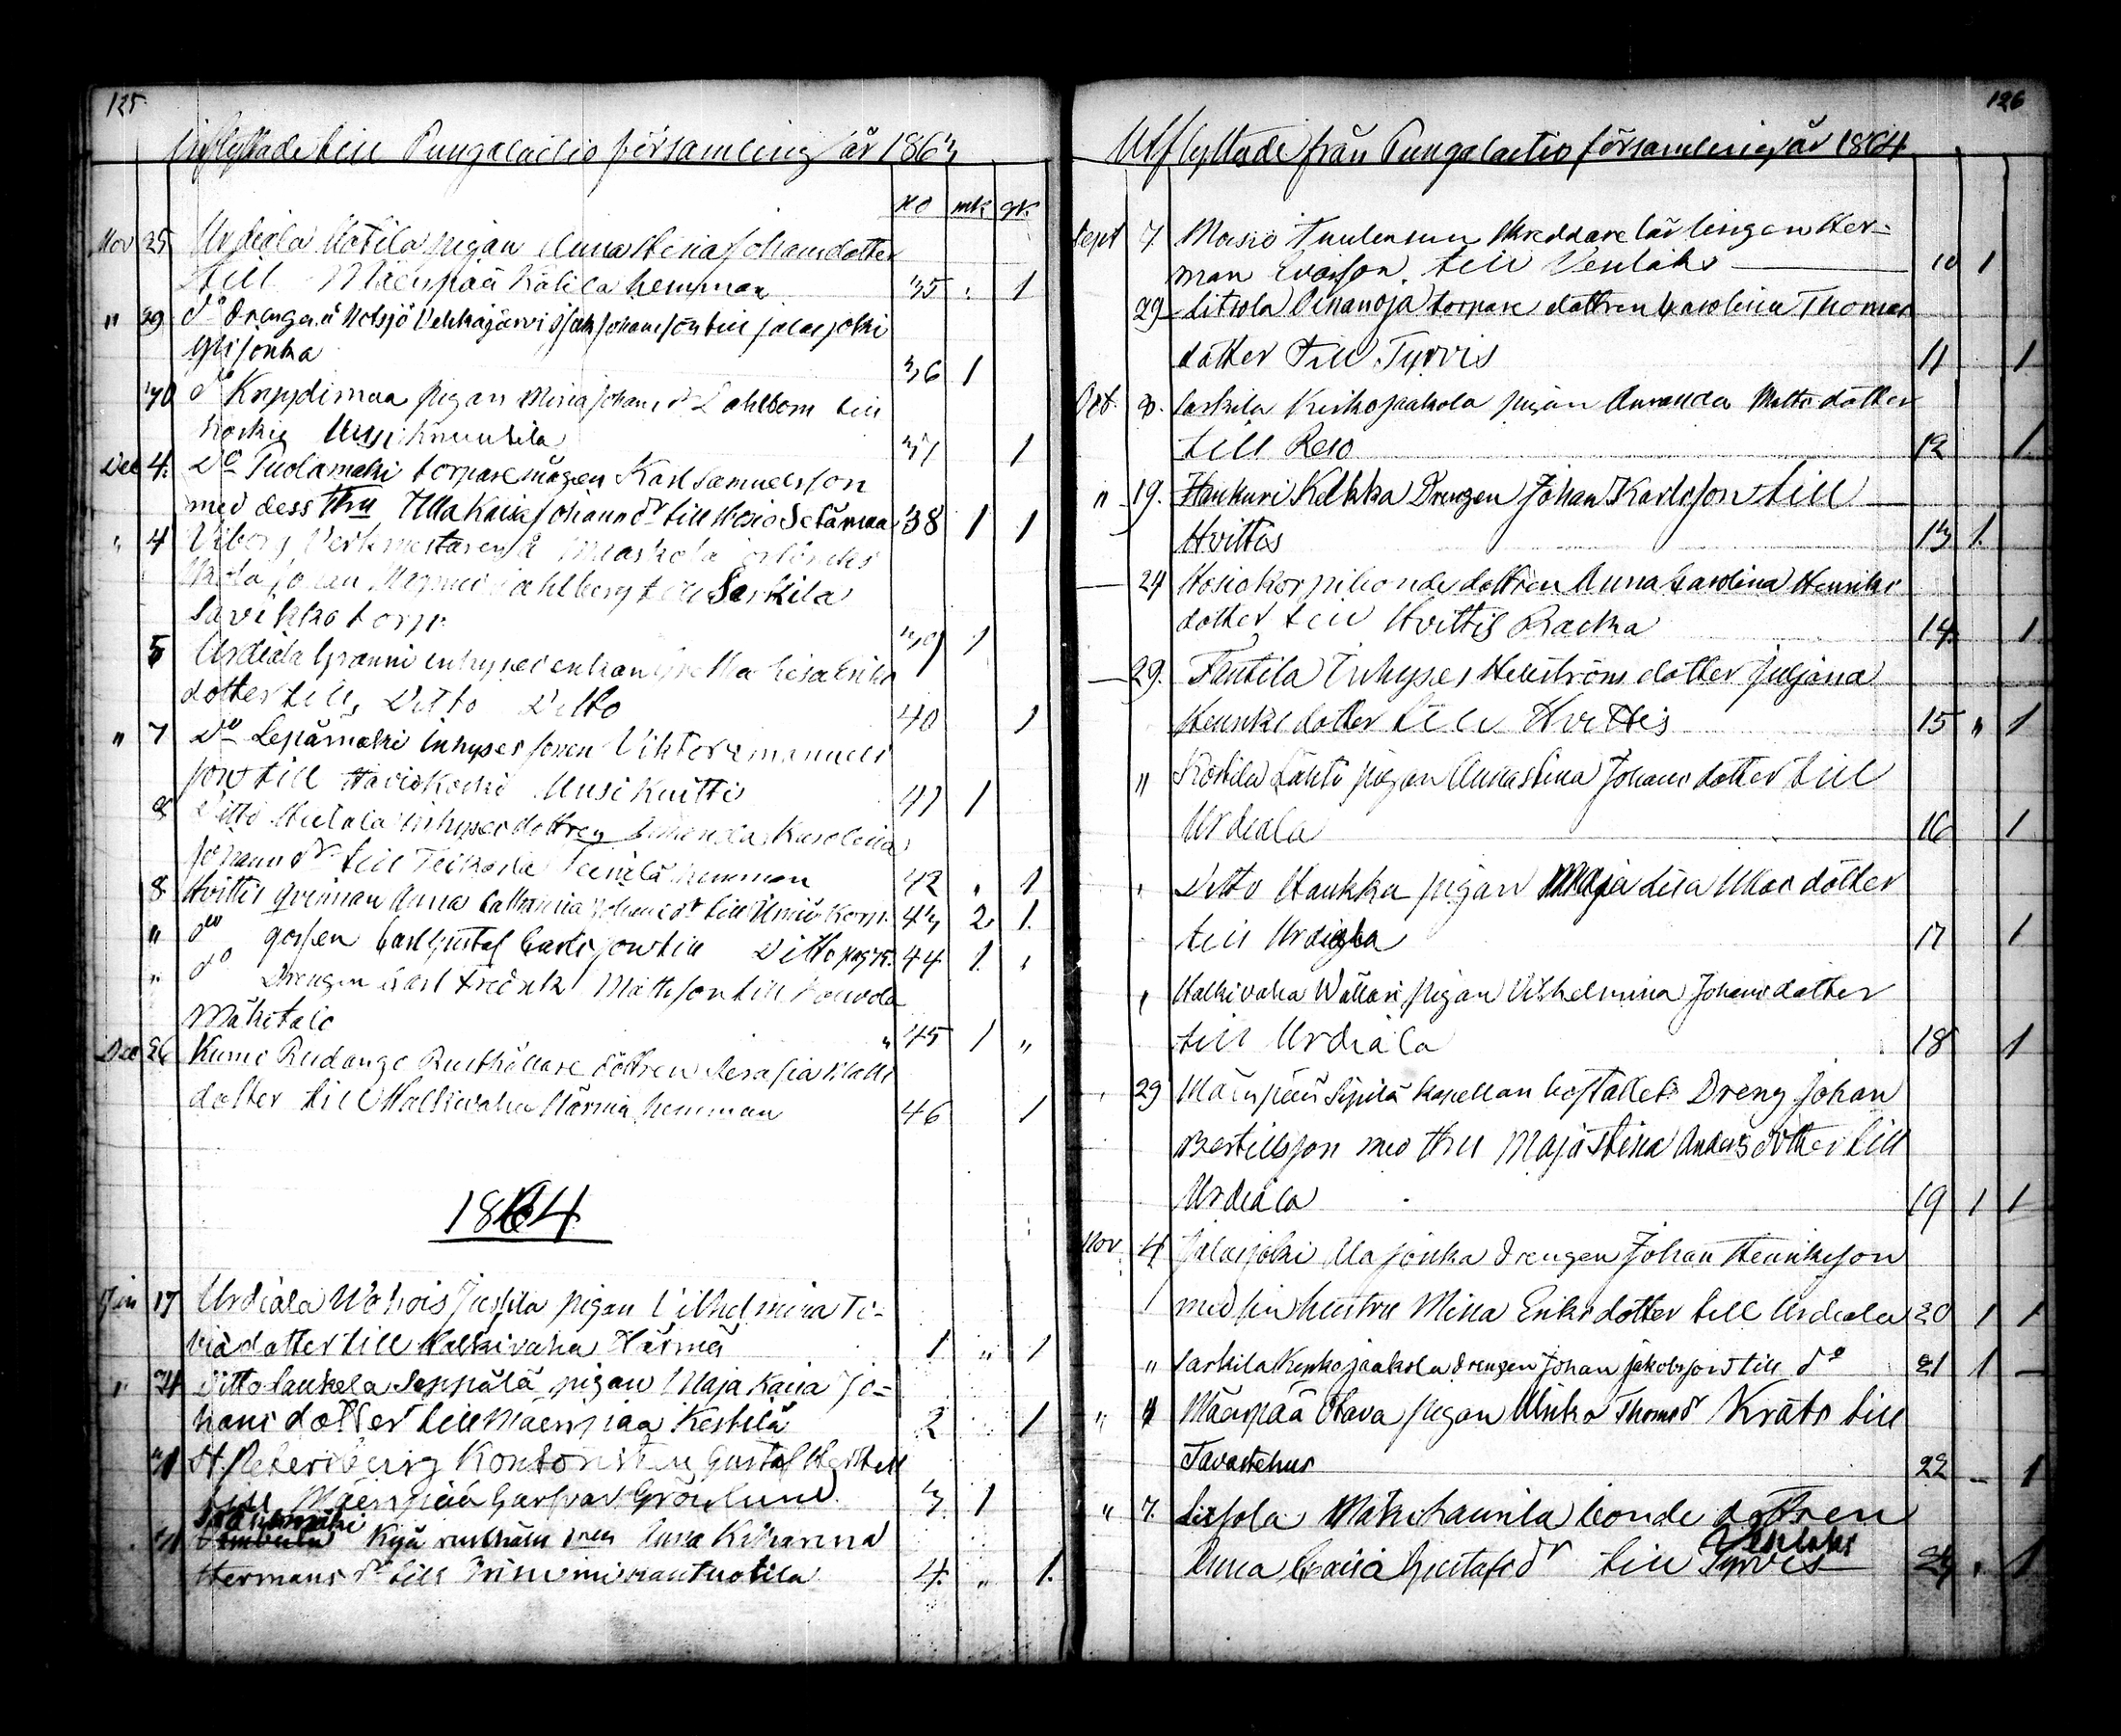 125
Inflyttade till Pungalaitio församling år 1863
No mk qk.
Nov 25 Urdiala Uotila pigan Anna Stina Johansdotter
till Mäenpää hemman 35 1
" 29 do Drengen å Notsjö Vehkajärvi Isak Johansson till Jalasjoki
Yli jonka 36 1
30 do Kappelinmaa pigan Mina Johansdr Dahlbom till
Uusi Knuutila 37 1
Dec 4. Do Puolamaki torpare mågen Karl Samuelsson
med dess Hru Ulla Kaisa Johansdr till Hosio Setänmaa 38 1 1
" 4 Viborg Verkmestaren å
Johan Magnus Dahlberg till Sarkila
Savikko torp 39 1
5 Urdiala Granni inhyses enkan Greta Lisa Eriks
dotter till Ditto Ditto 40 1
" 7 Do Lepämäki inhyses sonen Viktor Emanuels
son till Haviokoski Uusi Kuitti 41 1
8 Ditto Hutala inhyses dottren Amanda Karolina
Johansdr till Teikarla hemman 42 " 1
8 Hvittis qvinnan Anna Catharina Johansdr till Urmio Korp. 43 2 1.
" do gossen Carl Gustaf Carlsson till Ditto pag 75. 44 1. "
" do Drengen Carl Fredrik Mattsson till Kouvola
Mäkitalo " 45 1 "
Dec 26 Kumo Rudanko Rusthållare dottren Serafia Matts
dotter till Halkivaha Härmä hemman 46 1
1864
Jan 17 Urdiala Wahois Jussila pigan Vilhelmina To-
biadotter till Halkivaha Härmä 1 " 1
" 24 Ditto Laukela Seppälä pigan Maja Kaisa Jo-
hansdotter till Mäenpää Kestilä 2 1
31 St. Petersburg Kontoristen Gustaf
till Mäenpää Garfvar Grönlund 3 1
31 Kylä rusthåll Anna Katharina
Hermansdr till 4. " 1.
126
Utflyttade från Pungalaitio församling år 1864
Sept 7 Mosio Tuulensuu Skreddare lärlingen Her-
man Evaisson till Venlaks 10 1
29 Liitsola Oinanoja torpare dottren Carolina Thomas
dotter till Tyrvis 11 1
Oct. 8. Sarkila Kirkojaakola pigan Amanda Matts dotter
till Reso 12 1
" 19. Haukuri Kelkka Drengen Johan Karlsson till
Hvittis 13 1.
24 Hosio Korpi bonde dottren Anna Carolina Henriks
dotter till Hvittis Racka 14. 1
29. Tautila Inhyses Hellströms dotter Juljana
Henriks dotter till Hvittis 15 " 1
" Kostila Lähti pigan Anna Stina Johans dotter till
Urdiala 16 1
" Ditto Haukka pigan Maja Lisa Mats dotter
till Urdiala 17 1
" Halkivaha Wällari pigan Vilhelmina Johans dotter
till Urdiala 18 1
" 29 Mäenpää Sipilä kapellan bostället Dreng Johan
Bertilsson med Hru Maja Stina Anders dotter till
Urdiala 19 1 1
Nov 4 Jalasjoki Ala jonka drengen Johan Henriksson
med sin hustru Mina Eriks dotter till Urdiala 20 1 1
" Sarkila Kirkojaakola drengen Johan Jakobsson till do 21 1 —
" Mäenpää Ojava pigan Ulrika Thomsdr Kräts till
Tavastehus 22 — 1
" 7. Liitsola bonde dottren
Anna Caisa Gustafsdr till Tyrvis Venlaks 23 " 1